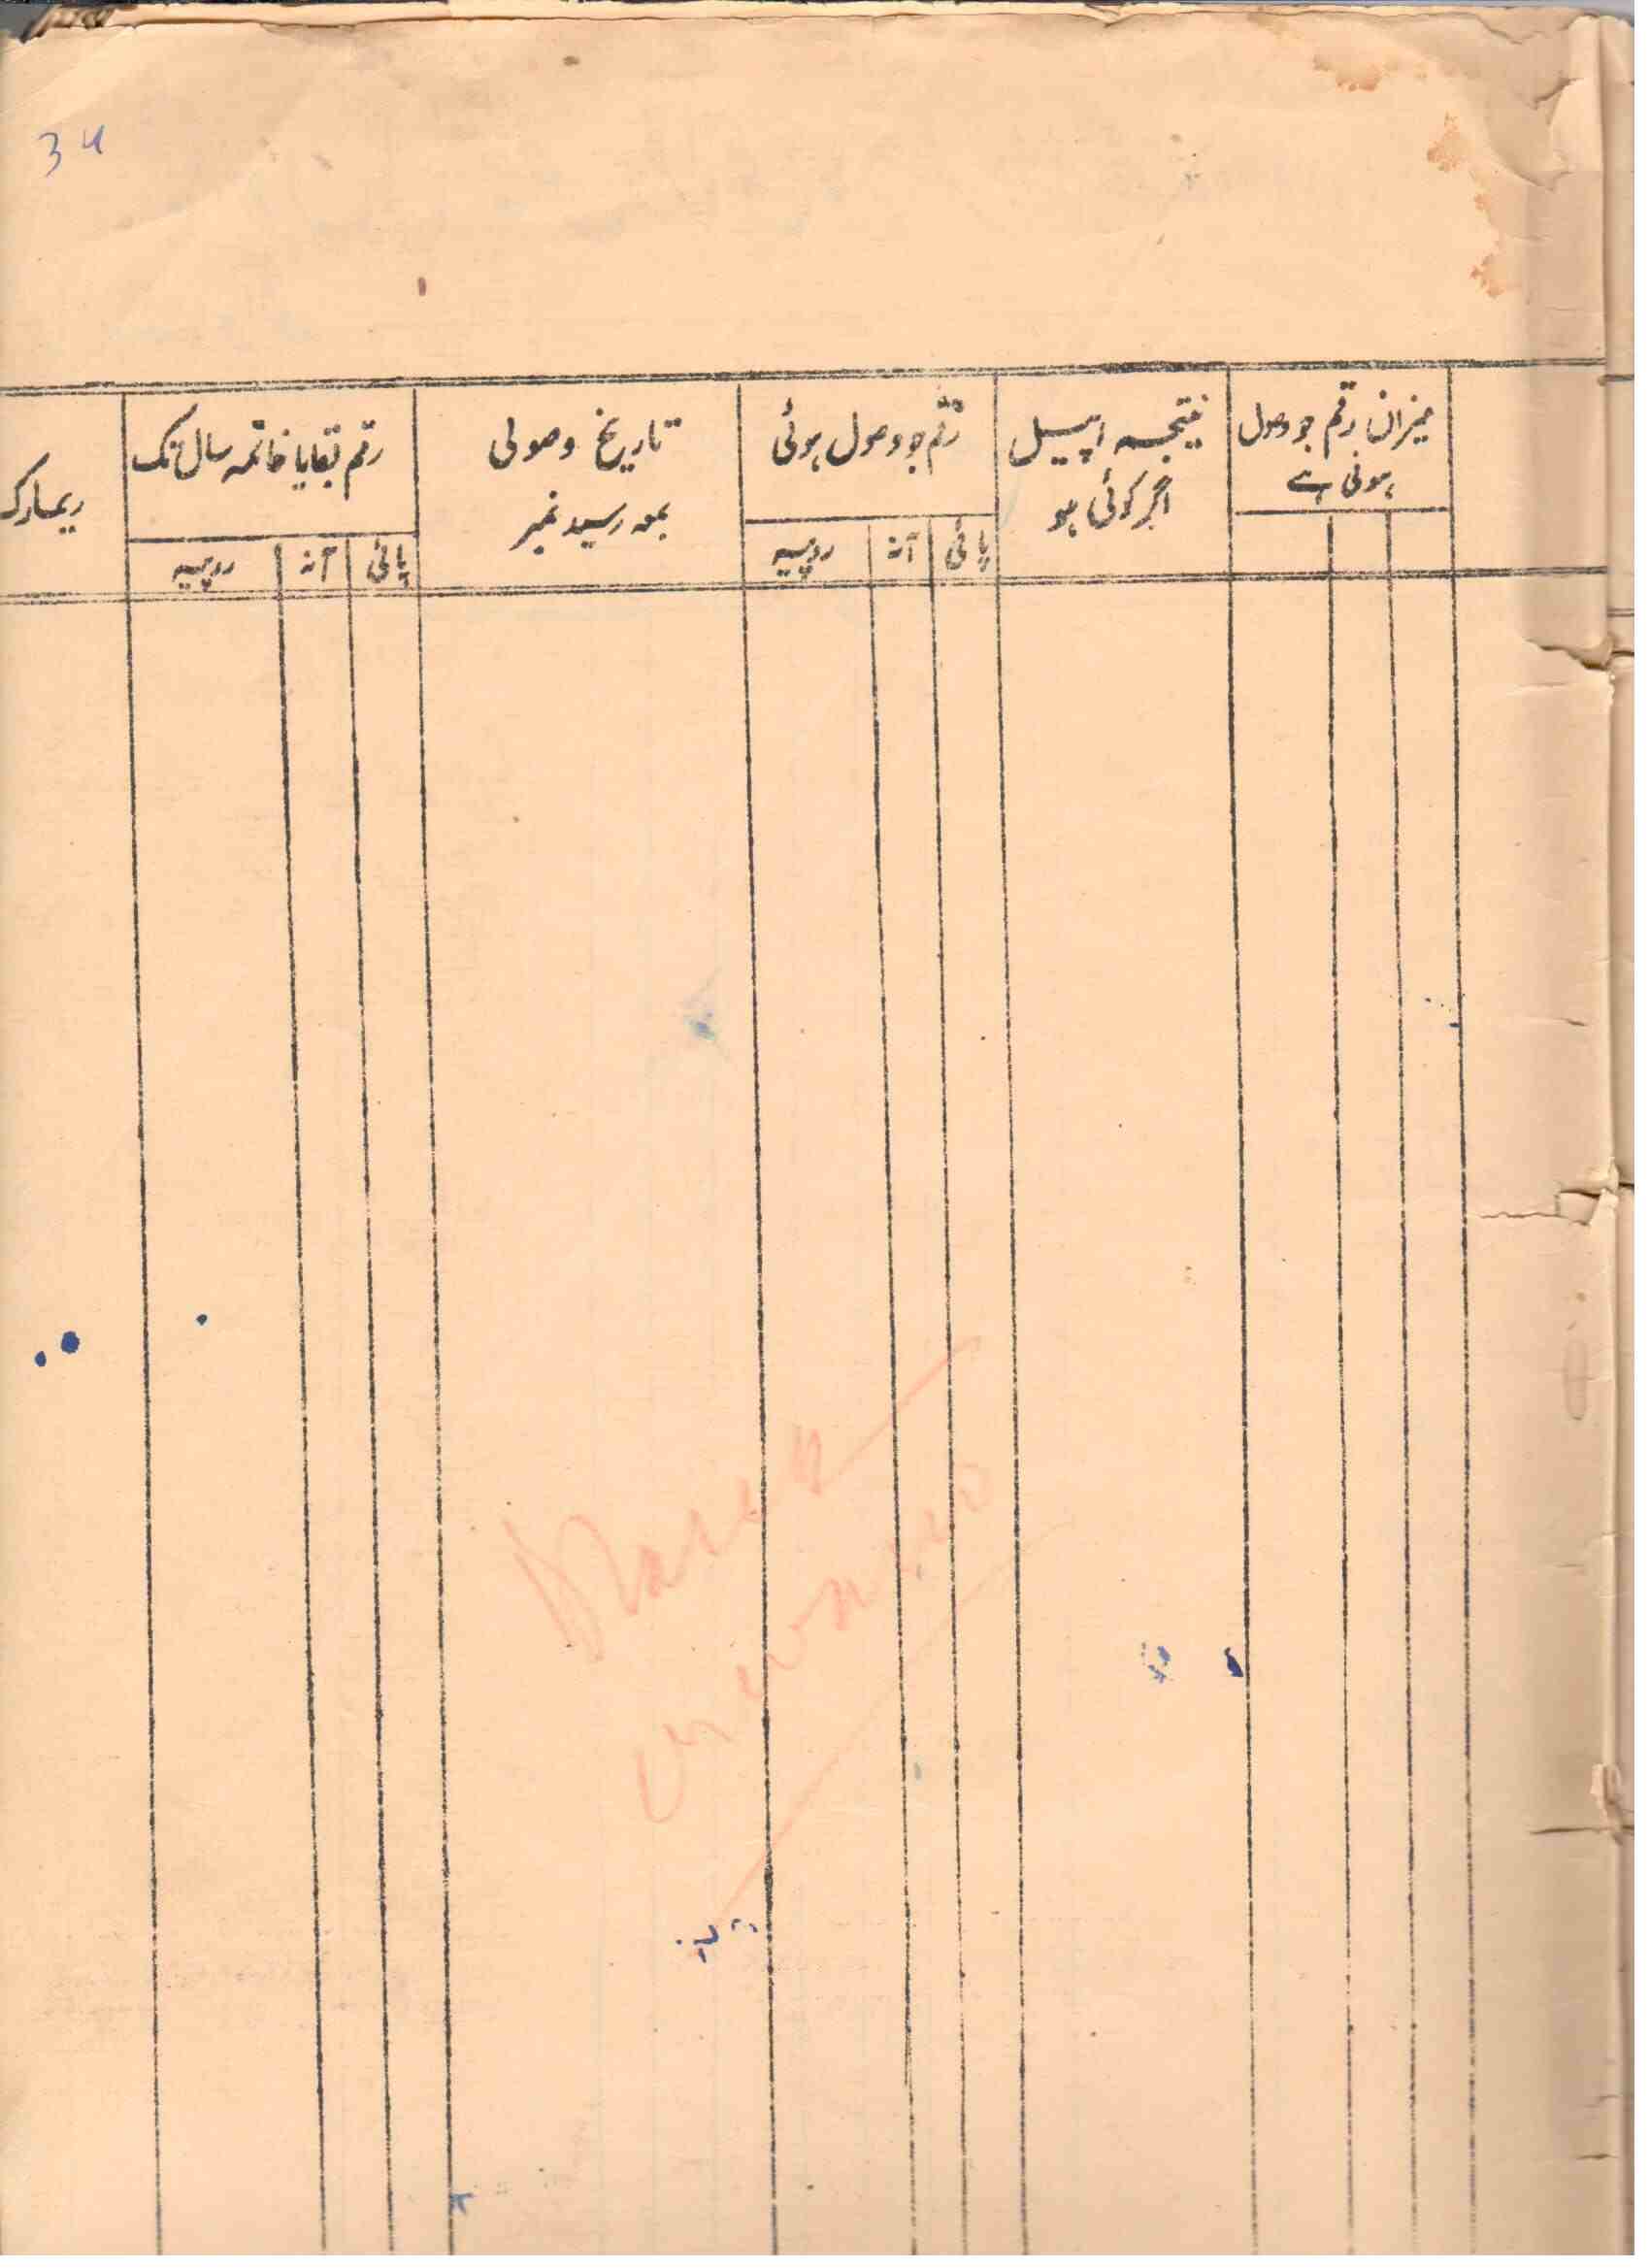 34
میزان رقم جو وصول
ہونی ہے
نتیجہ اپیل
اگر کوئی ہو
رقم جو وصول ہوئی
پائی آنہ روپیہ
تاریخ وصولی
بمعہ رسید نمبر
رقم بقایا خاتمہ سال تک
پائی آنہ روپیہ
ریمارک